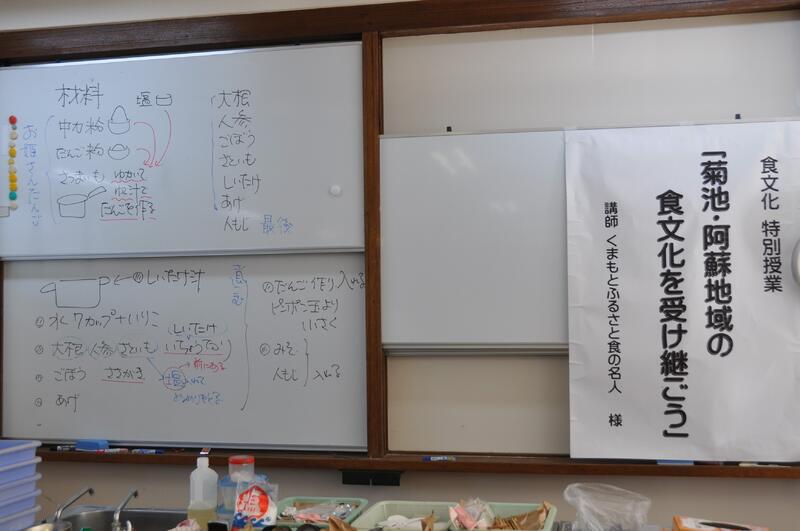 材料
塩
お姫さんだんご
中力粉
だんご粉
さつまいも ゆがいて
ゆ汁で
だんごを作る
大根
人参
ごぼう
さといも
しいたけ
あげ
人もじ 最後
しいたけ汁
水7カップ+いりこ
大根・人参 さといも
しいたけ
いちょうぎり
前にある
ごぼう ささがき
塩入れて
あげ
だんご作り 入れる
ピンポン玉より
小さく
みそ
人もじ
入れる
食文化 特別授業
「菊池・阿蘇地域の
食文化を受け継ごう」
講師 くまもとふるさと食の名人 様
塩